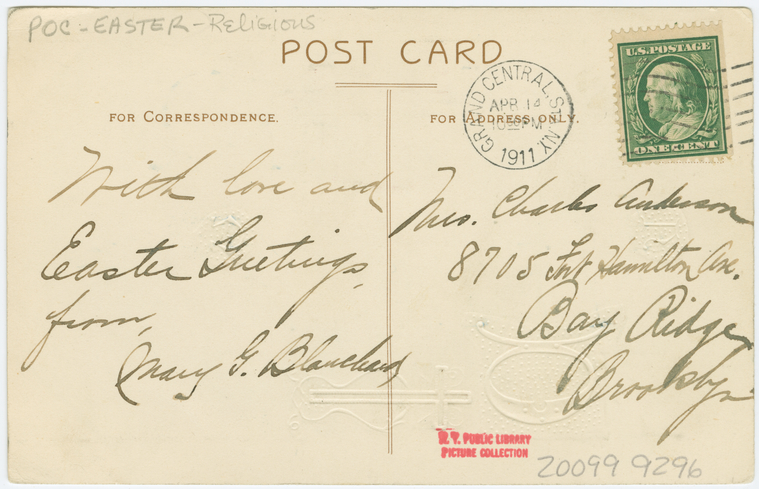 POC - EASTER - Religious
POST CARD
FOR CORRESPONDENCE.
FOR ADDRESS ONLY.
GRAND CENTRAL, STA. N.Y.
APR 14
PM
1911
U.S. POSTAGE
ONE CENT
With love and
Easter Greetings,
from,
Mary G. Blanchard
Mrs. Charles Anderson
8705 Fort Hamilton Ave.
Bay Ridge,
Brooklyn
N. Y. PUBLIC LIBRARY
PICTURE COLLECTION
20099 9296